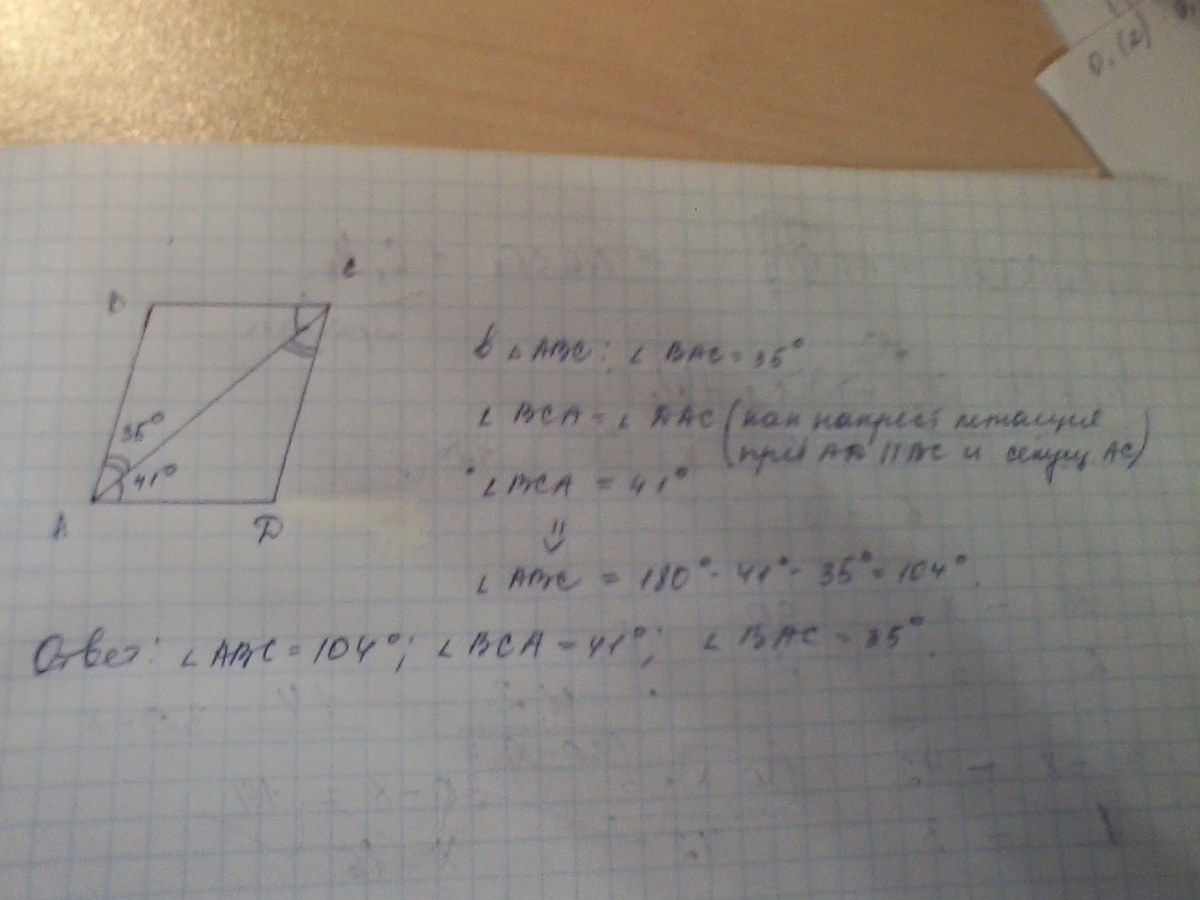 0,(2)
C
B
в ∠ABC: ∠BAC = 35°
∠BCA = ∠DAC (как накрест лежащие
при AD || BC и секущ AC)
35°
41°
∠BCA = 41°
A
D
⇓
∠ABC = 180° - 41° - 35° = 104°.
Ответ: ∠ABC = 104°; ∠BCA - 41°; ∠BAC = 35°.